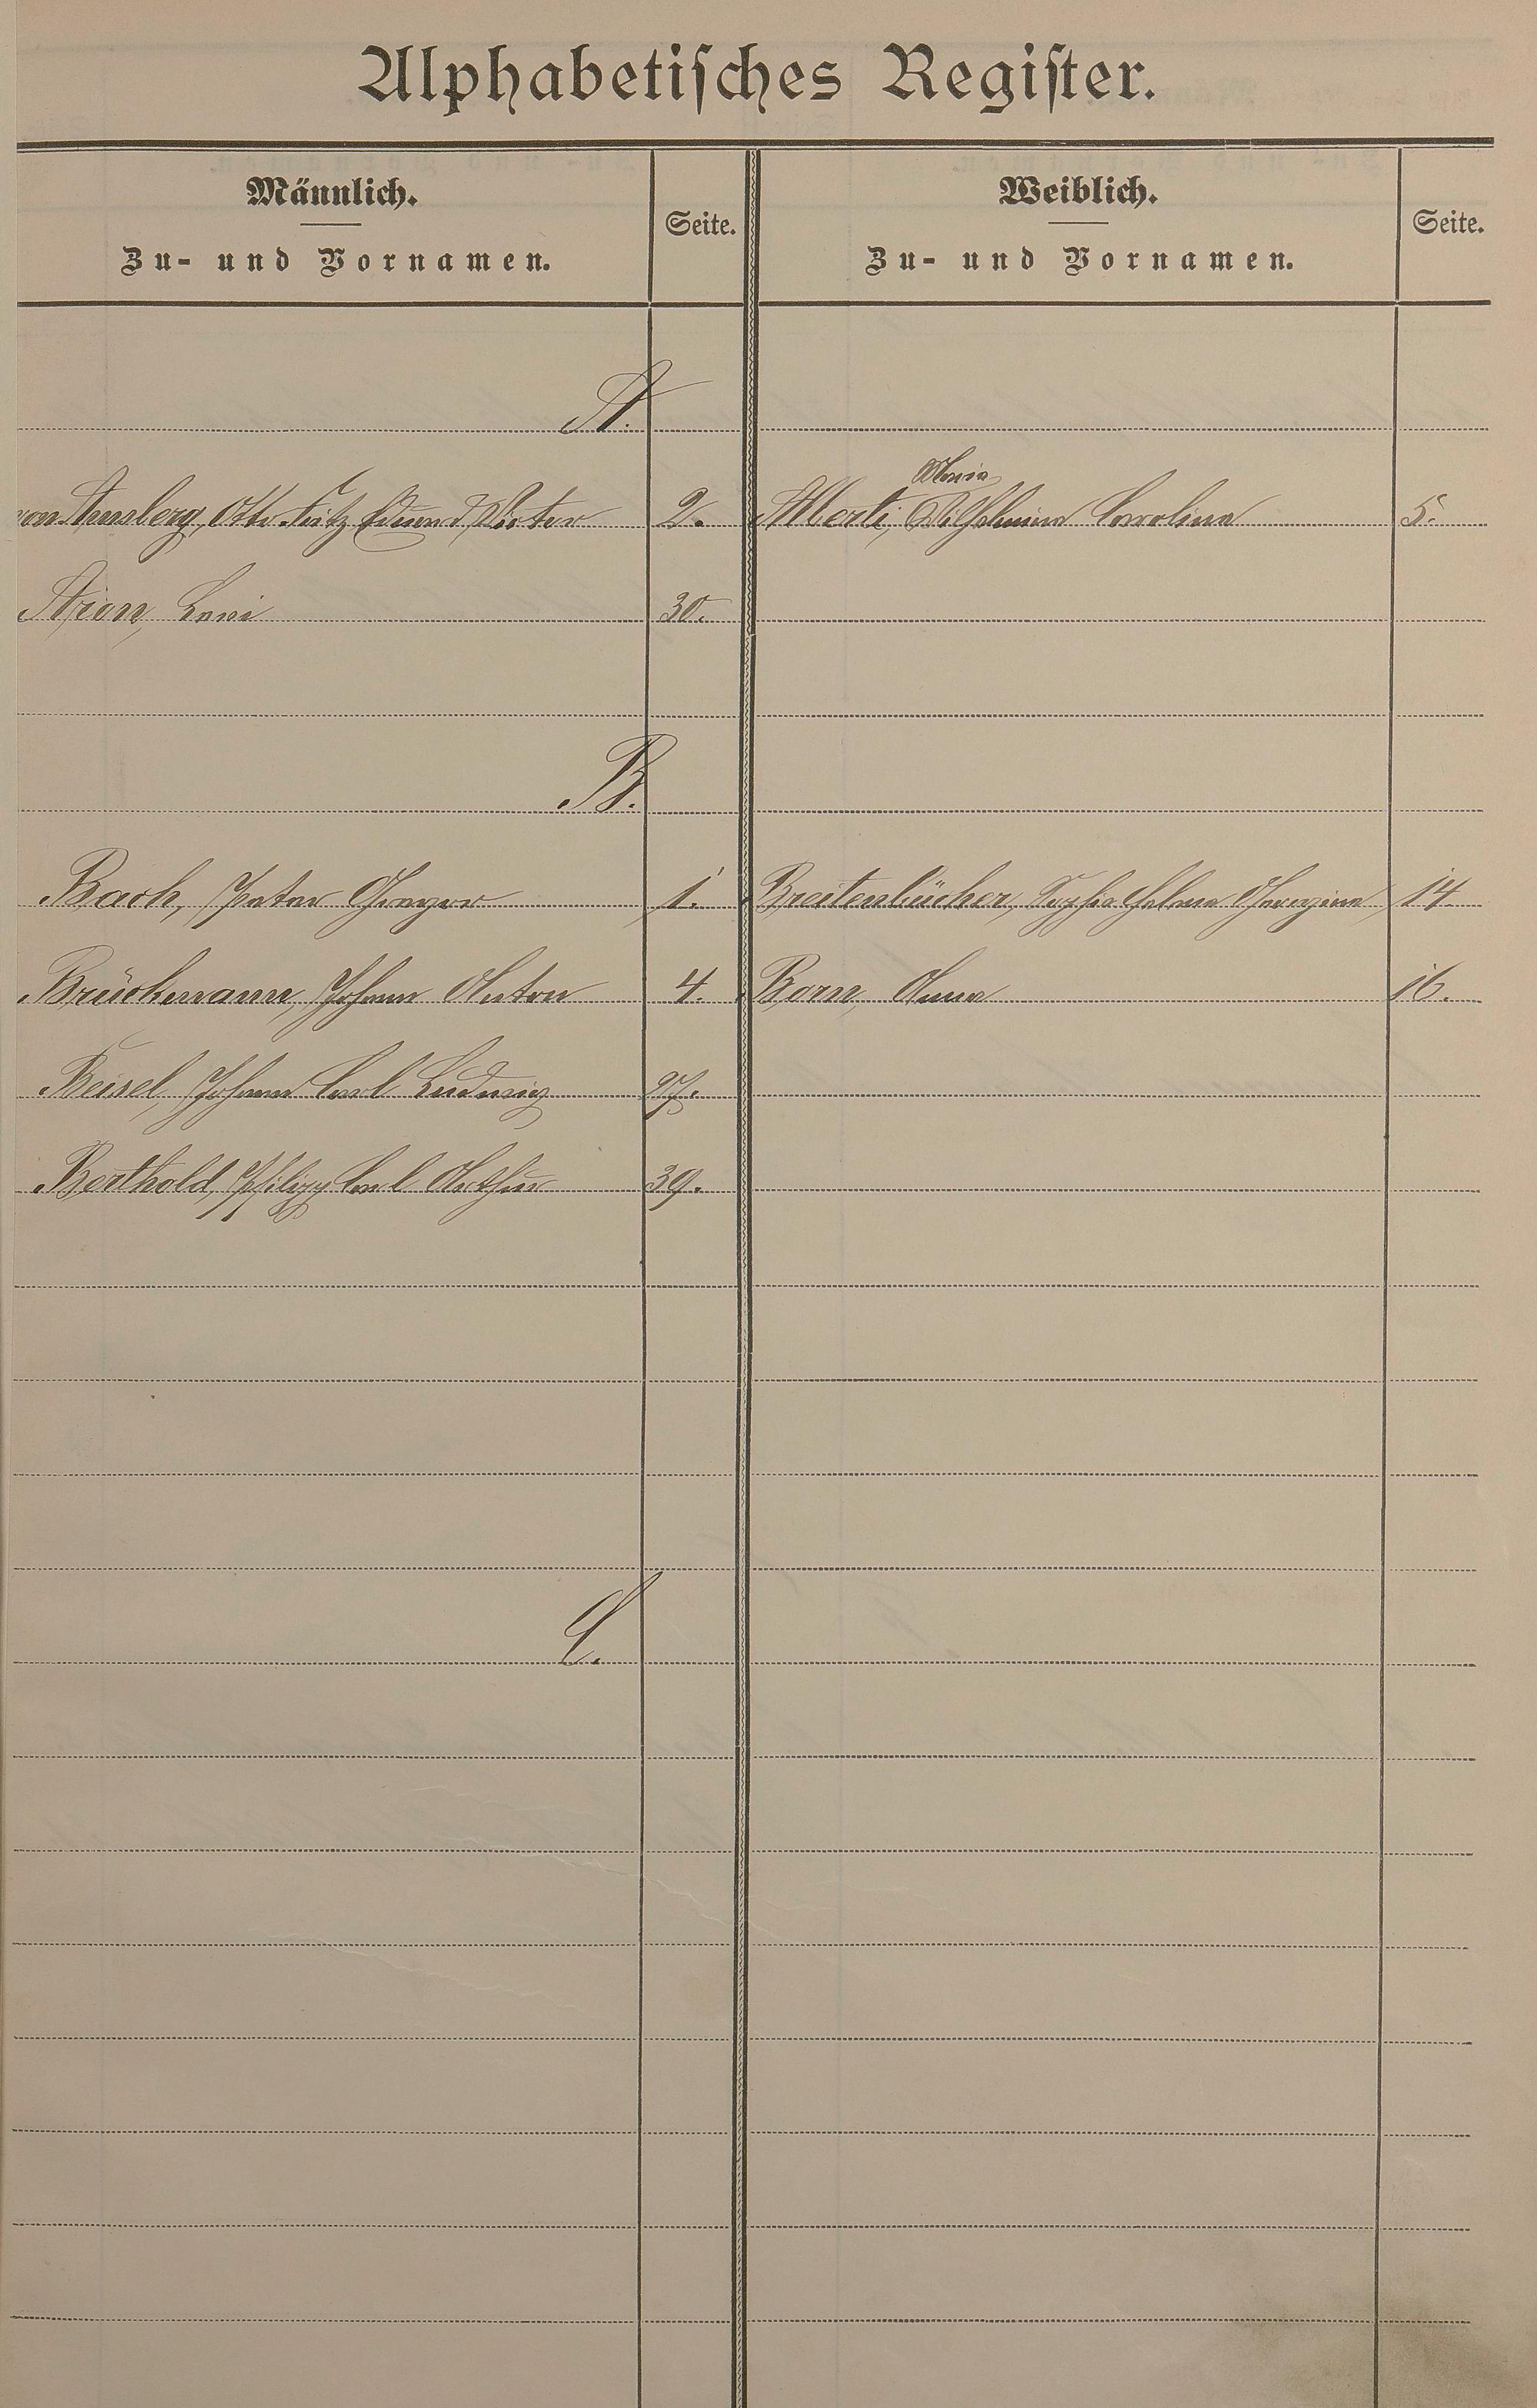 Alphabetisches Register.
Männlich. Weiblich.
Zu- und Vornamen. Seite. Zu- und Vornamen. Seite.
A.
Maria
von Arnsberg, Otto Fritz Eduard Victor 2. Alberti, Wilhelmina Carolina 5.
Arion, Levi 30.
B.
Bach, Peter Gregor 1. Breitenbücher, Sophie Helene Georgine 14.
Brückmann, Johann Anton 4. Born, Anna 16.
Beisel, Johann Carl Ludwig 27.
Berthold, Philipp Carl Arthur 39.
C.